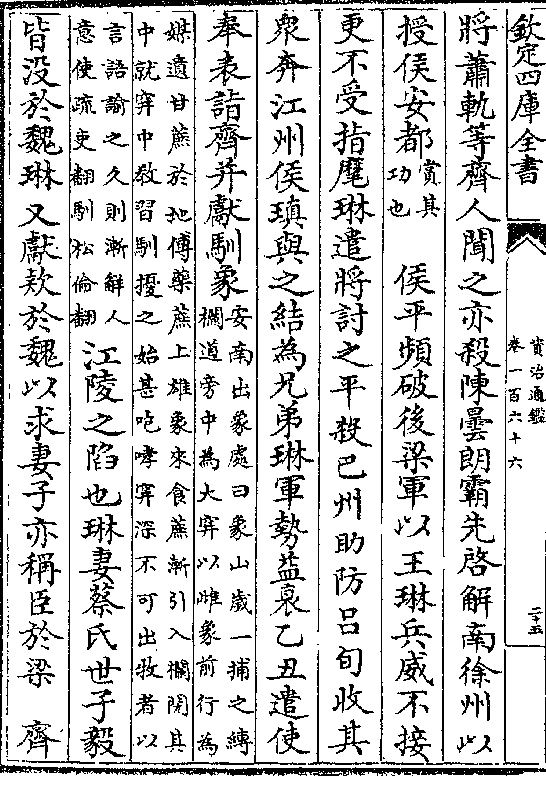 欽定四庫全書
資治通鑑
卷一百六十六
二十五
將蕭軌等齊人聞之亦殺陳曇朗霸先啓解南徐州以
授侯安都賞其功也　侯平頻破後梁軍以王琳兵威不接
更不受指麾琳遣將討之平殺巴州助防吕旬收其
衆奔江州侯瑱與之結為兄弟琳軍勢益衰乙丑遣使
奉表詣齊并獻馴象安南出象處曰象山歲一捕之縛欄道旁中為大穽以雌象前行為
媒適甘蔗於地傅藥蔗上雄象來食蔗漸引入欄閉其中就穽中教習馴擾之始甚咆哮穽深不可出牧者以
言語諭之久則漸解人意使疏吏翻馴松倫翻江陵之陷也琳妻蔡氏世子毅
皆没於魏琳又獻欵於魏以求妻子亦稱臣於梁　齊